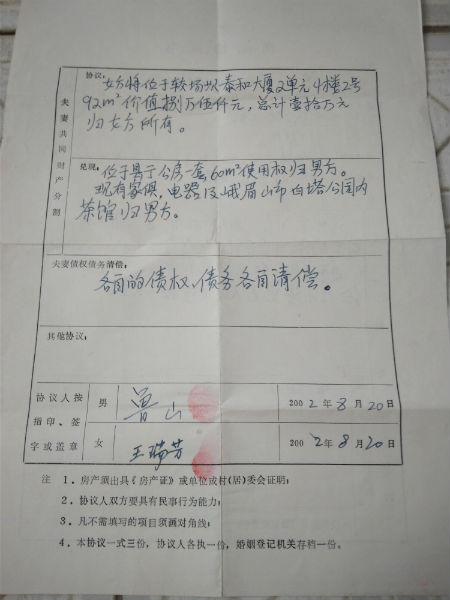 夫妻共同财产分割
协议:
女方将位于较场坝泰和大厦2单元4楼2号
92m²价值捌万伍仟元,总计壹拾万元
归女方所有。
兑现:
位于 公房一套60m²使用权归男方。
现有家俱,电器及峨眉山市白塔公园内
茶馆归男方。
夫妻债权债务清偿:
各自的债权、债务各自清偿。
其他协议:
协议人按指印、签字或盖章
男 鲁山 2002年8月20日
女 王瑞芳 2002年8月20日
注 1.房产须出具《房产证》或单位或村(居)委会证明;
2.协议人双方要具有民事行为能力;
3.凡不需填写的项目须画对角线;
4.本协议一式三份,协议人各执一份,婚姻登记机关存档一份。